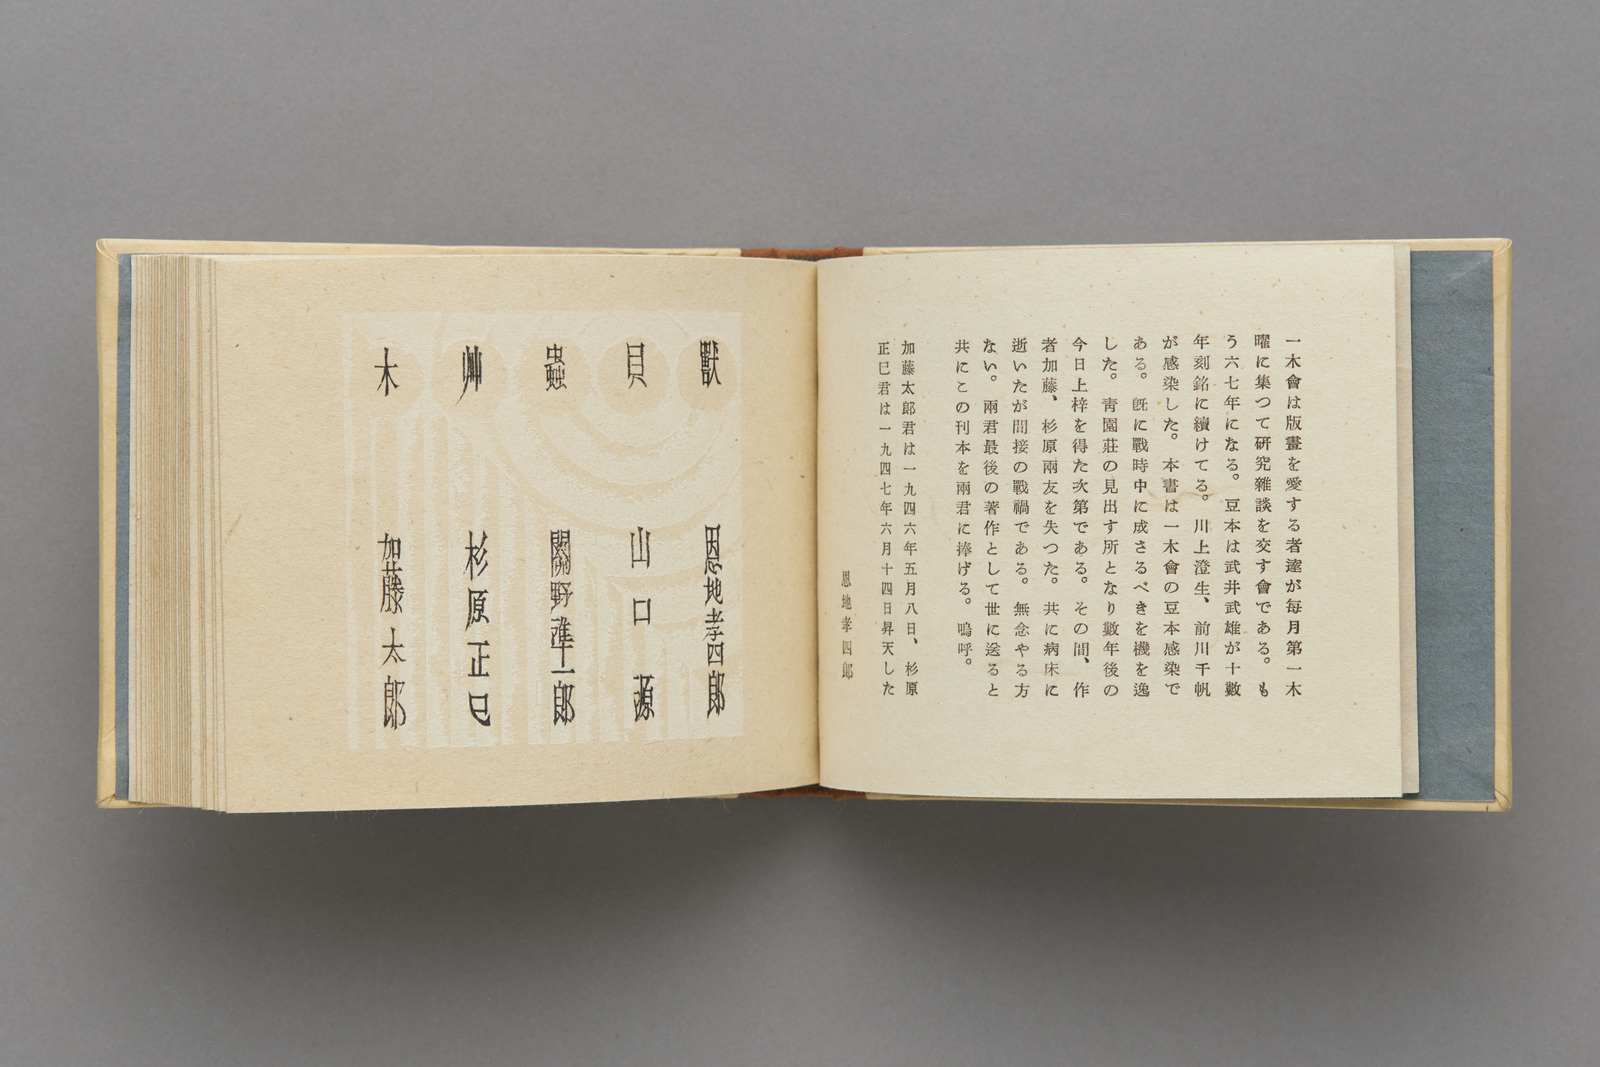 一木會は版畫を愛する者達が毎月第一木
曜に集つて研究雜談を交す會である。も
う六七年になる。豆本は武井武雄が十數
年刻銘に續けてる。川上澄生、前川千帆
が感染した。本書は一木會の豆本感染で
ある。既に戰時中に成さるべきを機を逸
した。靑園莊の見出す所となり數年後の
今日上梓を得た次第である。その間、作
者加藤、杉原兩友を失つた。共に病床に
逝いたが間接の戰禍である。無念やる方
ない。兩君最後の著作として世に送ると
共にこの刊本を兩君に捧げる。嗚呼。
加藤太郞君は一九四六年五月八日、杉原
正巳君は一九四七年六月十四日昇天した
恩地孝四郞
獸 恩地孝四郎
貝 山口源
蟲 關野準一郎
艸 杉原正巳
木 加藤太郎